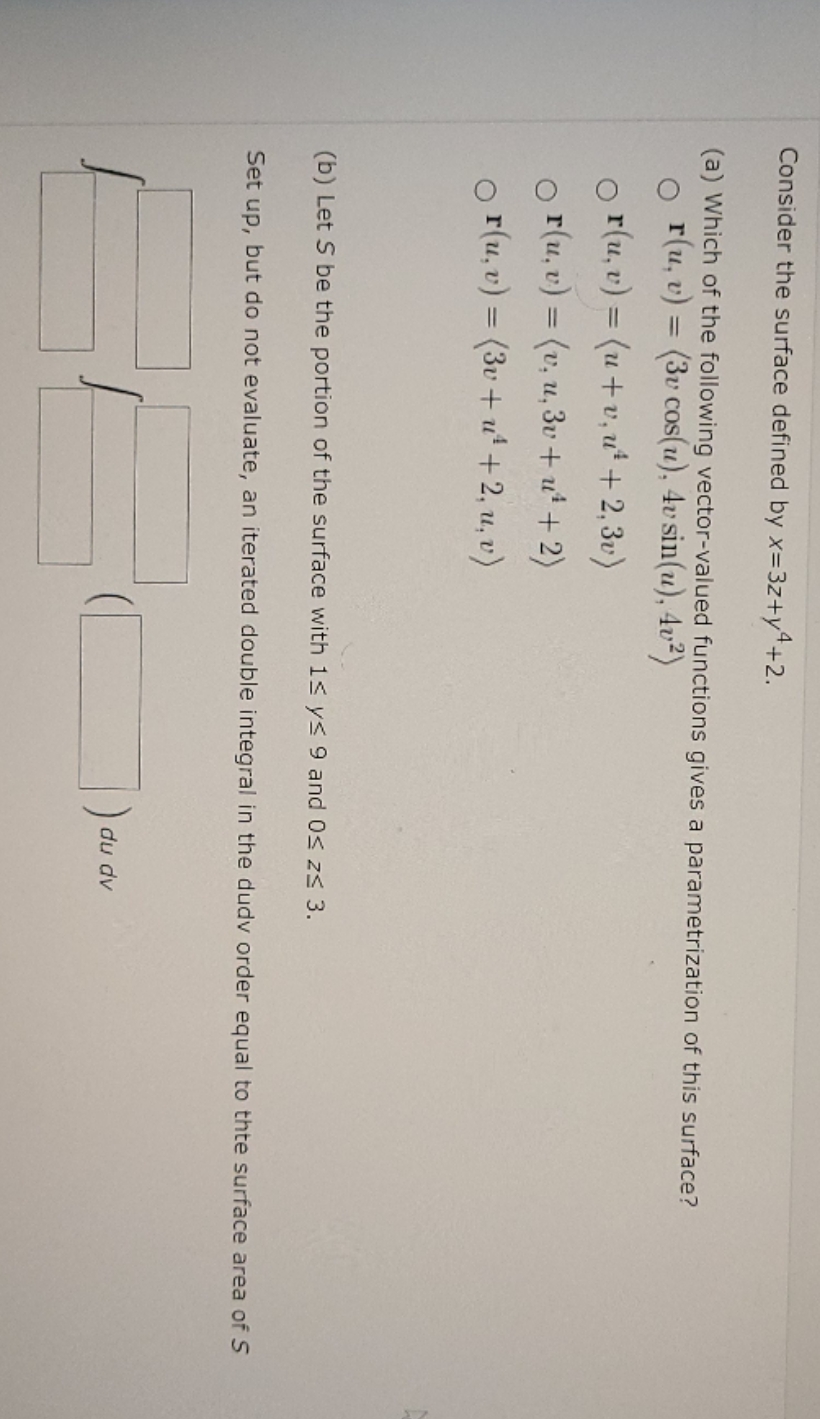 Consider the surface defined by x=3z+y⁴+2.
(a) Which of the following vector-valued functions gives a parametrization of this surface?
r(u, v) = ⟨3v cos(u), 4v sin(u), 4v²⟩
r(u, v) = ⟨u + v, u⁴ + 2, 3v⟩
r(u, v) = ⟨v, u, 3v + u⁴ + 2⟩
r(u, v) = ⟨3v + u⁴ + 2, u, v⟩
(b) Let S be the portion of the surface with 1≤ y≤ 9 and 0≤ z≤ 3.
Set up, but do not evaluate, an iterated double integral in the dudv order equal to thte surface area of S
∫ ∫ ( ) du dv